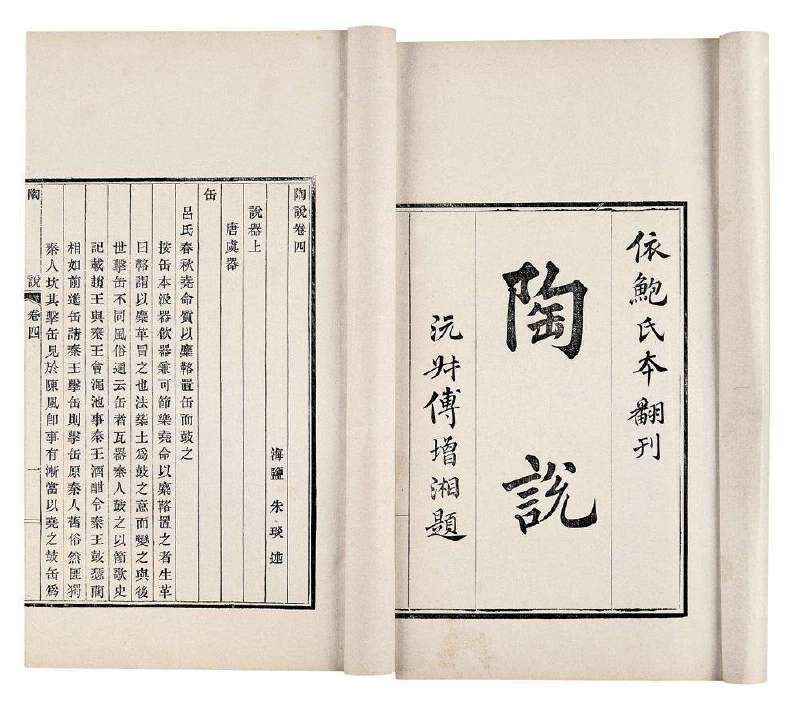 依鮑氏本翻刊
陶說
沅叔傅增湘題
陶說卷四
海鹽 朱琰 述
說器上
唐虞器
缶
呂氏春秋堯命質以麋𩊚置缶而鼓之
按缶本汲器飲器兼可節樂堯命以麋𩊚置之者生革
曰𩊚謂以麋革冒之也法築土爲鼓之意而變之與後
世擊缶不同風俗通云缶者瓦器秦人鼓之以節歌史
記載趙王與秦王會澠池事秦王酒酣令趙王鼓瑟藺
相如前進缶請秦王擊缶則擊缶原秦人舊俗然匪獨
秦人坎其擊缶見於陳風卽事有漸當以堯之鼓缶爲
陶說 卷四 一